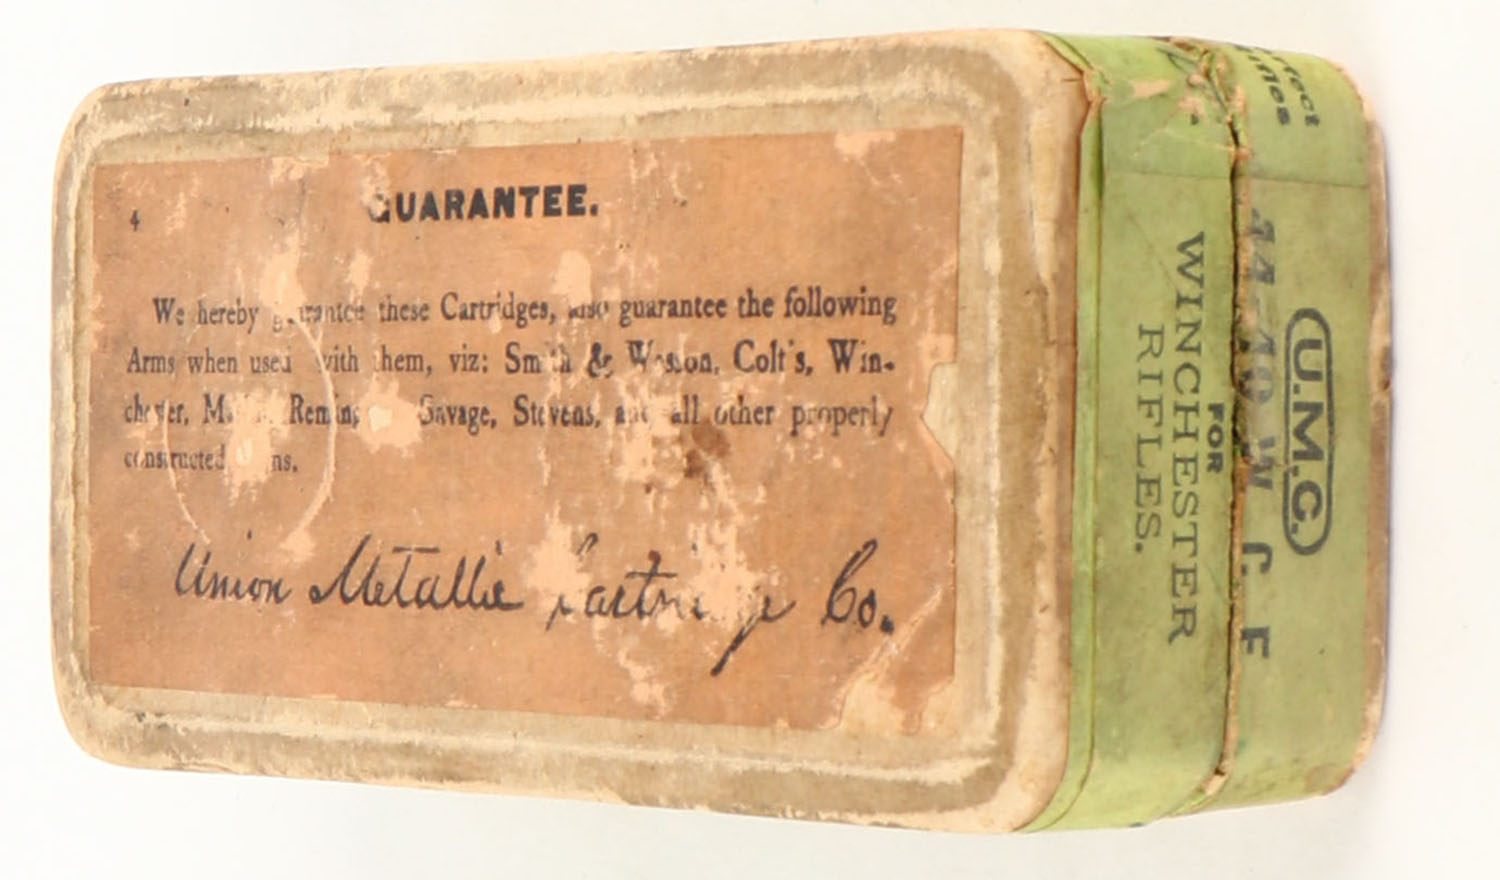 GUARANTEE.
4
We hereby guarantee these Cartridges, also guarantee the following
Arms when used with them, viz: Smith & Wesson, Colt's, Win-
chester, Remington, Savage, Stevens, and all other properly
constructed
Union Metallic Cartridge Co.
U.M.C.
44-40 W. C. F
FOR
WINCHESTER
RIFLES.